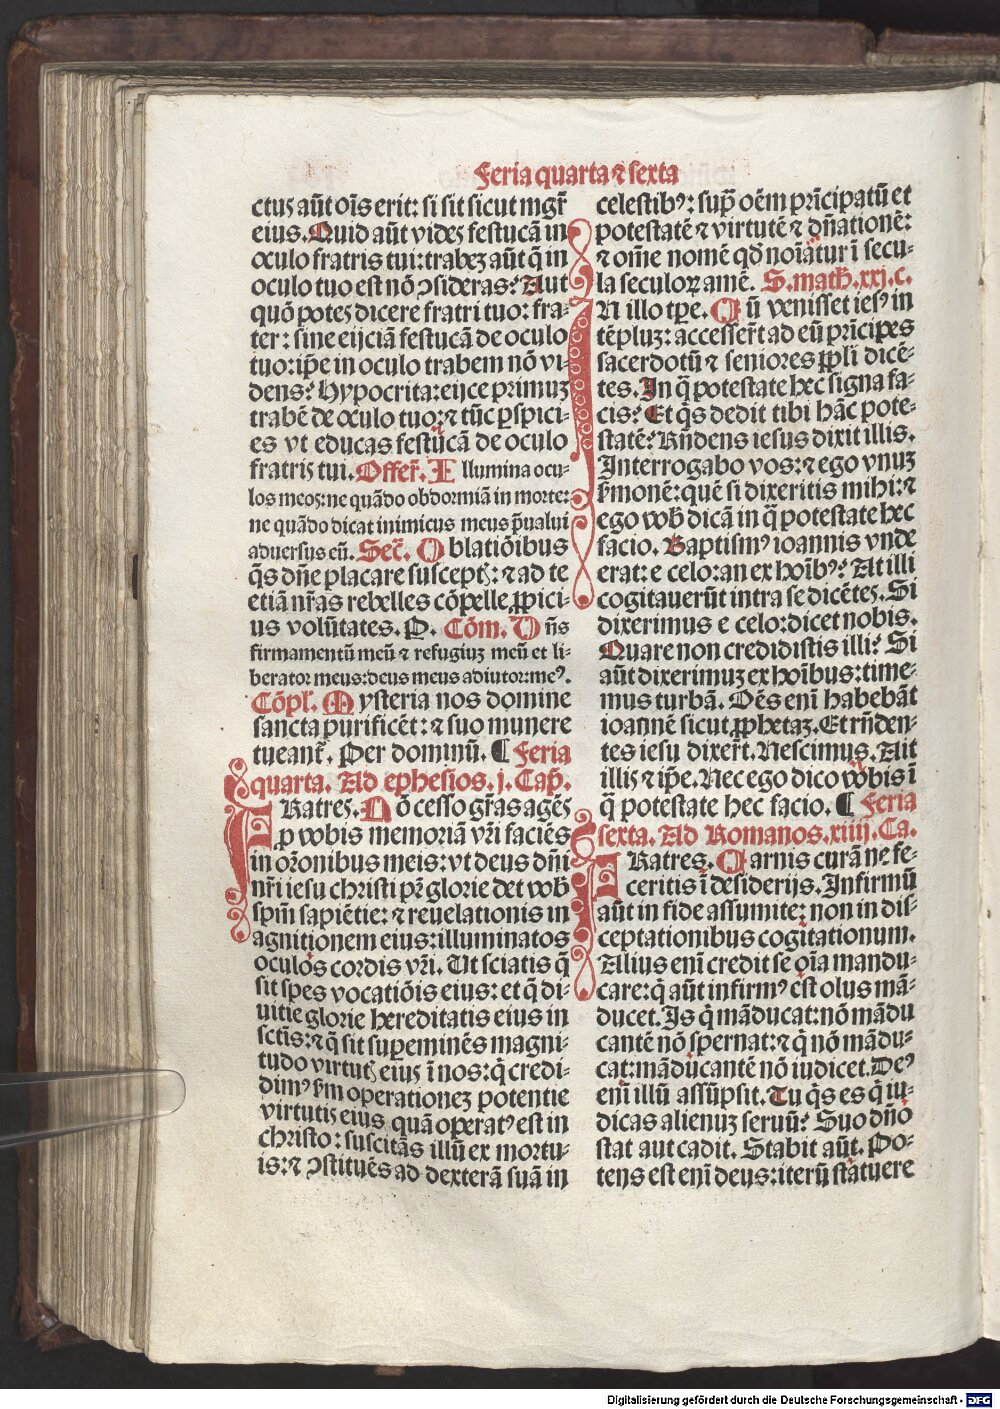 Feria quarta ⁊ sexta
ctus aūt oīs erit: si sit sicut mgr̄
eius. Quid aūt vides festucā in
oculo fratris tui: trabeꝫ aūt q̄ in
oculo tuo est nō ꝯsideras? Aut
quō potes dicere fratri tuo: fra-
ter: sine eijciā festucā de oculo
tuo: ip̄e in oculo trabem nō vi-
dens? Hypocrita: eijce primuꝫ
trabē de oculo tuo: ⁊ tūc ꝑspici-
es vt educas festucā de oculo
fratris tui. Offer̄. Illumina ocu-
los meos: ne quādo obdormiā in morte:
ne quādo dicat inimicus meus p̄ualui
aduersus eū. Sec̄. Oblatiōibus
q̄s dn̄e placare suscept̄: ⁊ ad te
etiā nr̄as rebelles cōpelle ꝓpici-
us volūtates. P. Cōm. Dn̄s
firmamentū meū ⁊ refugiuꝫ meū et li-
berator meus: deus meus adiutor: meꝰ.
Cōpl̄. Mysteria nos domine
sancta purificēt: ⁊ suo munere
tueant̄. Per dominū. ¶ Feria
quarta. Ad ephesios. j. Cap̄.
FRatres. Nō cesso gr̄as agēs
ꝓ vobis memoriā vr̄i faciēs
in or̄onibus meis: vt deus dn̄i
nr̄i iesu christi pr̄ glorie det vob̄
sp̄m sapiētie: ⁊ reuelationis in
agnitionem eius: illuminatos
oculos cordis vr̄i. Ut sciatis q̄
sit spes vocatiōis eius: et q̄ di-
uitie glorie hereditatis eius in
sctīs: ⁊ q̄ sit suꝑeminēs magni-
tudo virtut̄ eius ī nos: q̄ credi-
dimꝰ ẜm operationeꝫ potentie
virtutis eius quā operatꝰ est in
christo: suscitās illū ex mortu-
is: ⁊ ꝯstituēs ad dexterā suā in
celestibꝰ: sup̄ oēm pr̄icipatū et
potestatē ⁊ virtutē ⁊ dn̄ationē:
⁊ om̄e nomē qd̄ noīatur ī secu-
la seculoꝝ amē. S. math. xxj. c.
IN illo tp̄e. Cū venisset iesꝰ in
tēpluꝫ: accesser̄t ad eū pr̄icipes
sacerdotū ⁊ seniores ꝓpl̄i dicē-
tes. In q̄ potestate hec signa fa-
cis? Et q̄s dedit tibi hāc pote-
statē? Rn̄dens iesus dixit illis.
Interrogabo vos: ⁊ ego vnuꝫ
ẜmonē: quē si dixeritis mihi: ⁊
ego vob̄ dicā in q̄ potestate hec
facio. Baptismꝰ ioannis vnde
erat: e celo: an ex hoībꝰ? At illi
cogitauerūt intra se dicētes. Si
dixerimus e celo: dicet nobis.
Quare non credidistis illi? Si
aūt dixerimuꝫ ex hoībus: time-
mus turbā. Oēs enī habebāt
ioannē sicut ꝓphetaꝫ. Et rn̄den-
tes iesu dixer̄t. Nescimus. Ait
illis ⁊ ip̄e. Nec ego dico vobis ī
q̄ potestate hec facio. ¶ Feria
sexta. Ad Romanos. xiiij. Ca.
FRatres. Carnis curā ne fe-
ceritis ī desiderijs. Infirmū
aūt in fide assumite: non in dis-
ceptationibus cogitationum.
Alius enī credit se oīa mandu-
care: q̄ aūt infirmꝰ est olus mā-
ducet. Is q̄ māducat: nō mādu
cantē nō spernat: ⁊ q̄ nō mādu-
cat: māducantē nō iudicet. Deꝰ
enī illū assūpsit. Tu q̄s es q̄ iu-
dicas alienuꝫ seruū? Suo dn̄o
stat aut cadit. Stabit aūt. Po-
tens est enī deus: iterū statuere
Digitalisierung gefördert durch die Deutsche Forschungsgemeinschaft - DFG